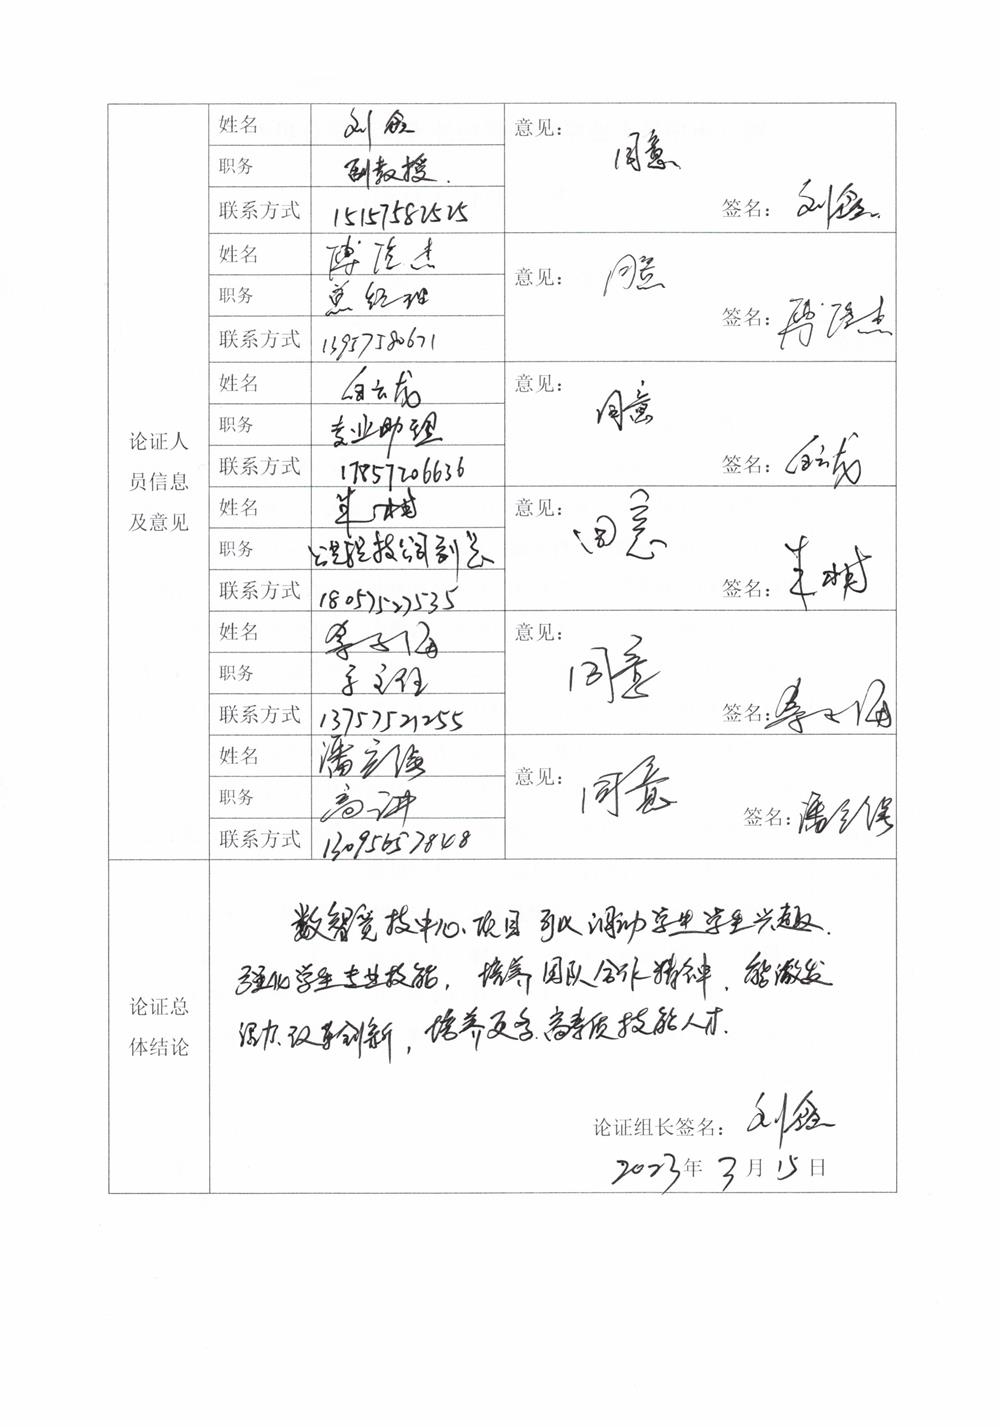 论证人员信息及意见
姓名 刘鑫
职务 副教授.
联系方式 15157582525
意见: 同意
签名: 刘鑫.
姓名 傅陆杰
职务 总经理
联系方式 13957580671
意见: 同意
签名: 傅陆杰
姓名 白云龙
职务 专业助理
联系方式 17857206636
意见: 同意
签名: 白云龙
姓名 朱
职务 科技公司副总
联系方式 18057527535
意见: 同意
签名: 朱
姓名 李海
职务 主任
联系方式 13757521255
意见: 同意
签名: 李海
姓名 潘立强
职务 高讲
联系方式 13095657848
意见: 同意
签名: 潘立强
论证总体结论
数智竞技中心项目可以调动学生学生兴趣.
强化学生专业技能, 培养团队合作精神, 能激发
活力、改革创新, 培养更多高素质技能人才.
论证组长签名: 刘鑫
2023年 3月15日